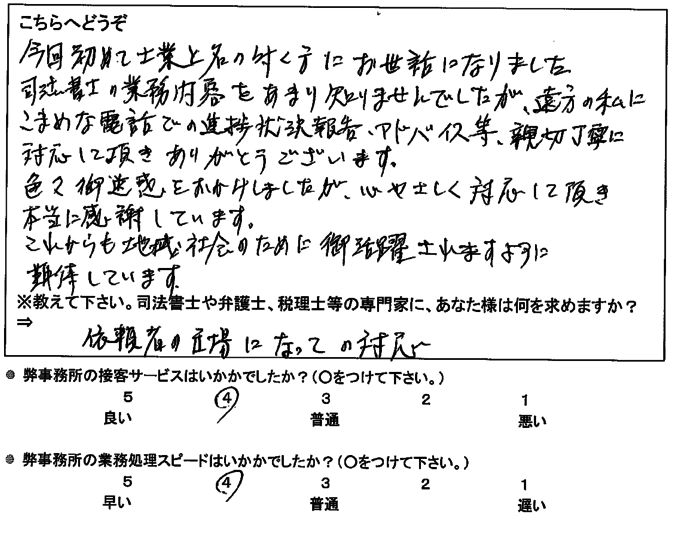 こちらへどうぞ
今回初めて士業と名の付く方にお世話になりました
司法書士の業務内容をあまり知りませんでしたが、遠方の私に
こまめな電話での進捗状況報告、アドバイス等、親切丁寧に
対応して頂きありがとうございます。
色々御迷惑をおかけしましたが、心やさしく対応して頂き
本当に感謝しています。
これからも地域社会のために御活躍されますように
期待しています。
※教えて下さい。司法書士や弁護士、税理士等の専門家に、あなた様は何を求めますか？
⇒
依頼者の立場になっての対応
● 弊事務所の接客サービスはいかかでしたか？（〇をつけて下さい。）
5 4 3 2 1
良い 普通 悪い
● 弊事務所の業務処理スピードはいかかでしたか？（〇をつけて下さい。）
5 4 3 2 1
早い 普通 遅い